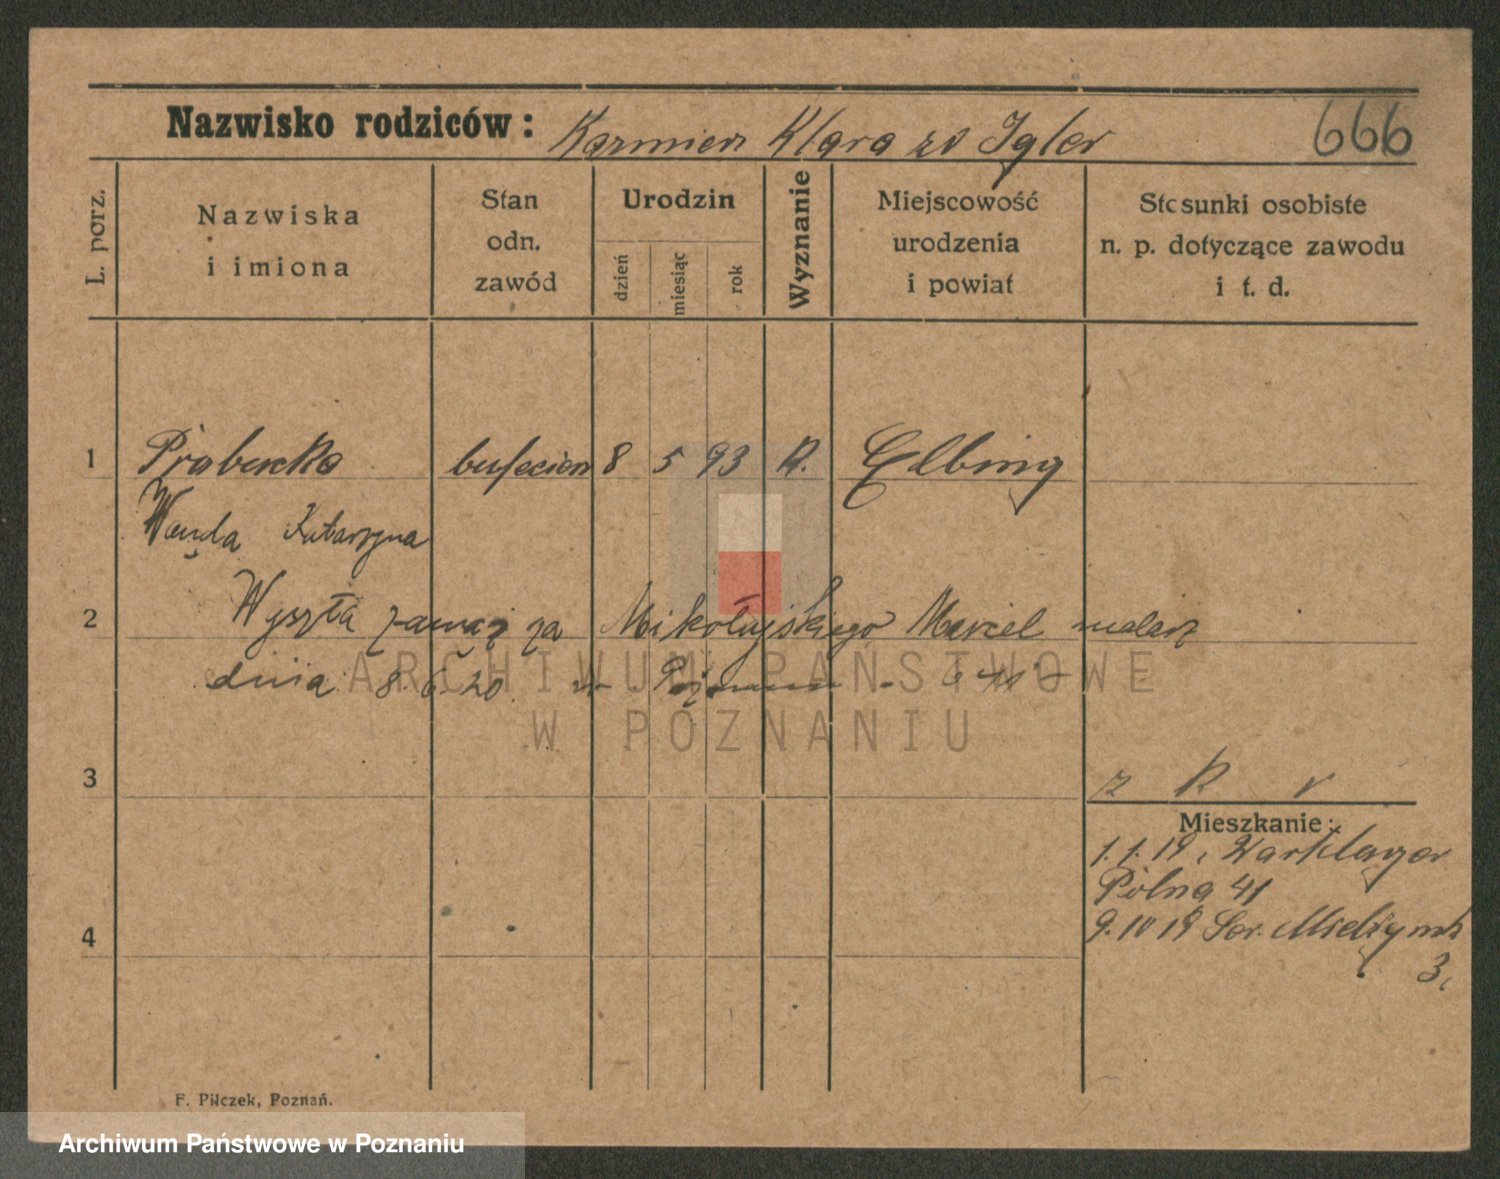 Nazwisko rodziców: Kazmierz Klara zd Igler 666
L. porz.
Nazwiska
i imiona
Stan
odn.
zawód
Urodzin
dzień
miesiąc
rok
Wyznanie
Miejscowość
urodzenia
i powiat
Stosunki osobiste
n. p. dotyczące zawodu
i t. d.
1 8 5 93 K. Elbing
Wanda Katarzyna
2 Wyszła zamąż za Mikołajskiego Marcel malarz
dnia 8 6 20
ARCHIWUM PAŃSTWOWE
W POZNANIU
3 z k v
Mieszkanie:
1.1.19,
Polna 41
4 9.10 19
3,
F. Pilczek, Poznań.
Archiwum Państwowe w Poznaniu